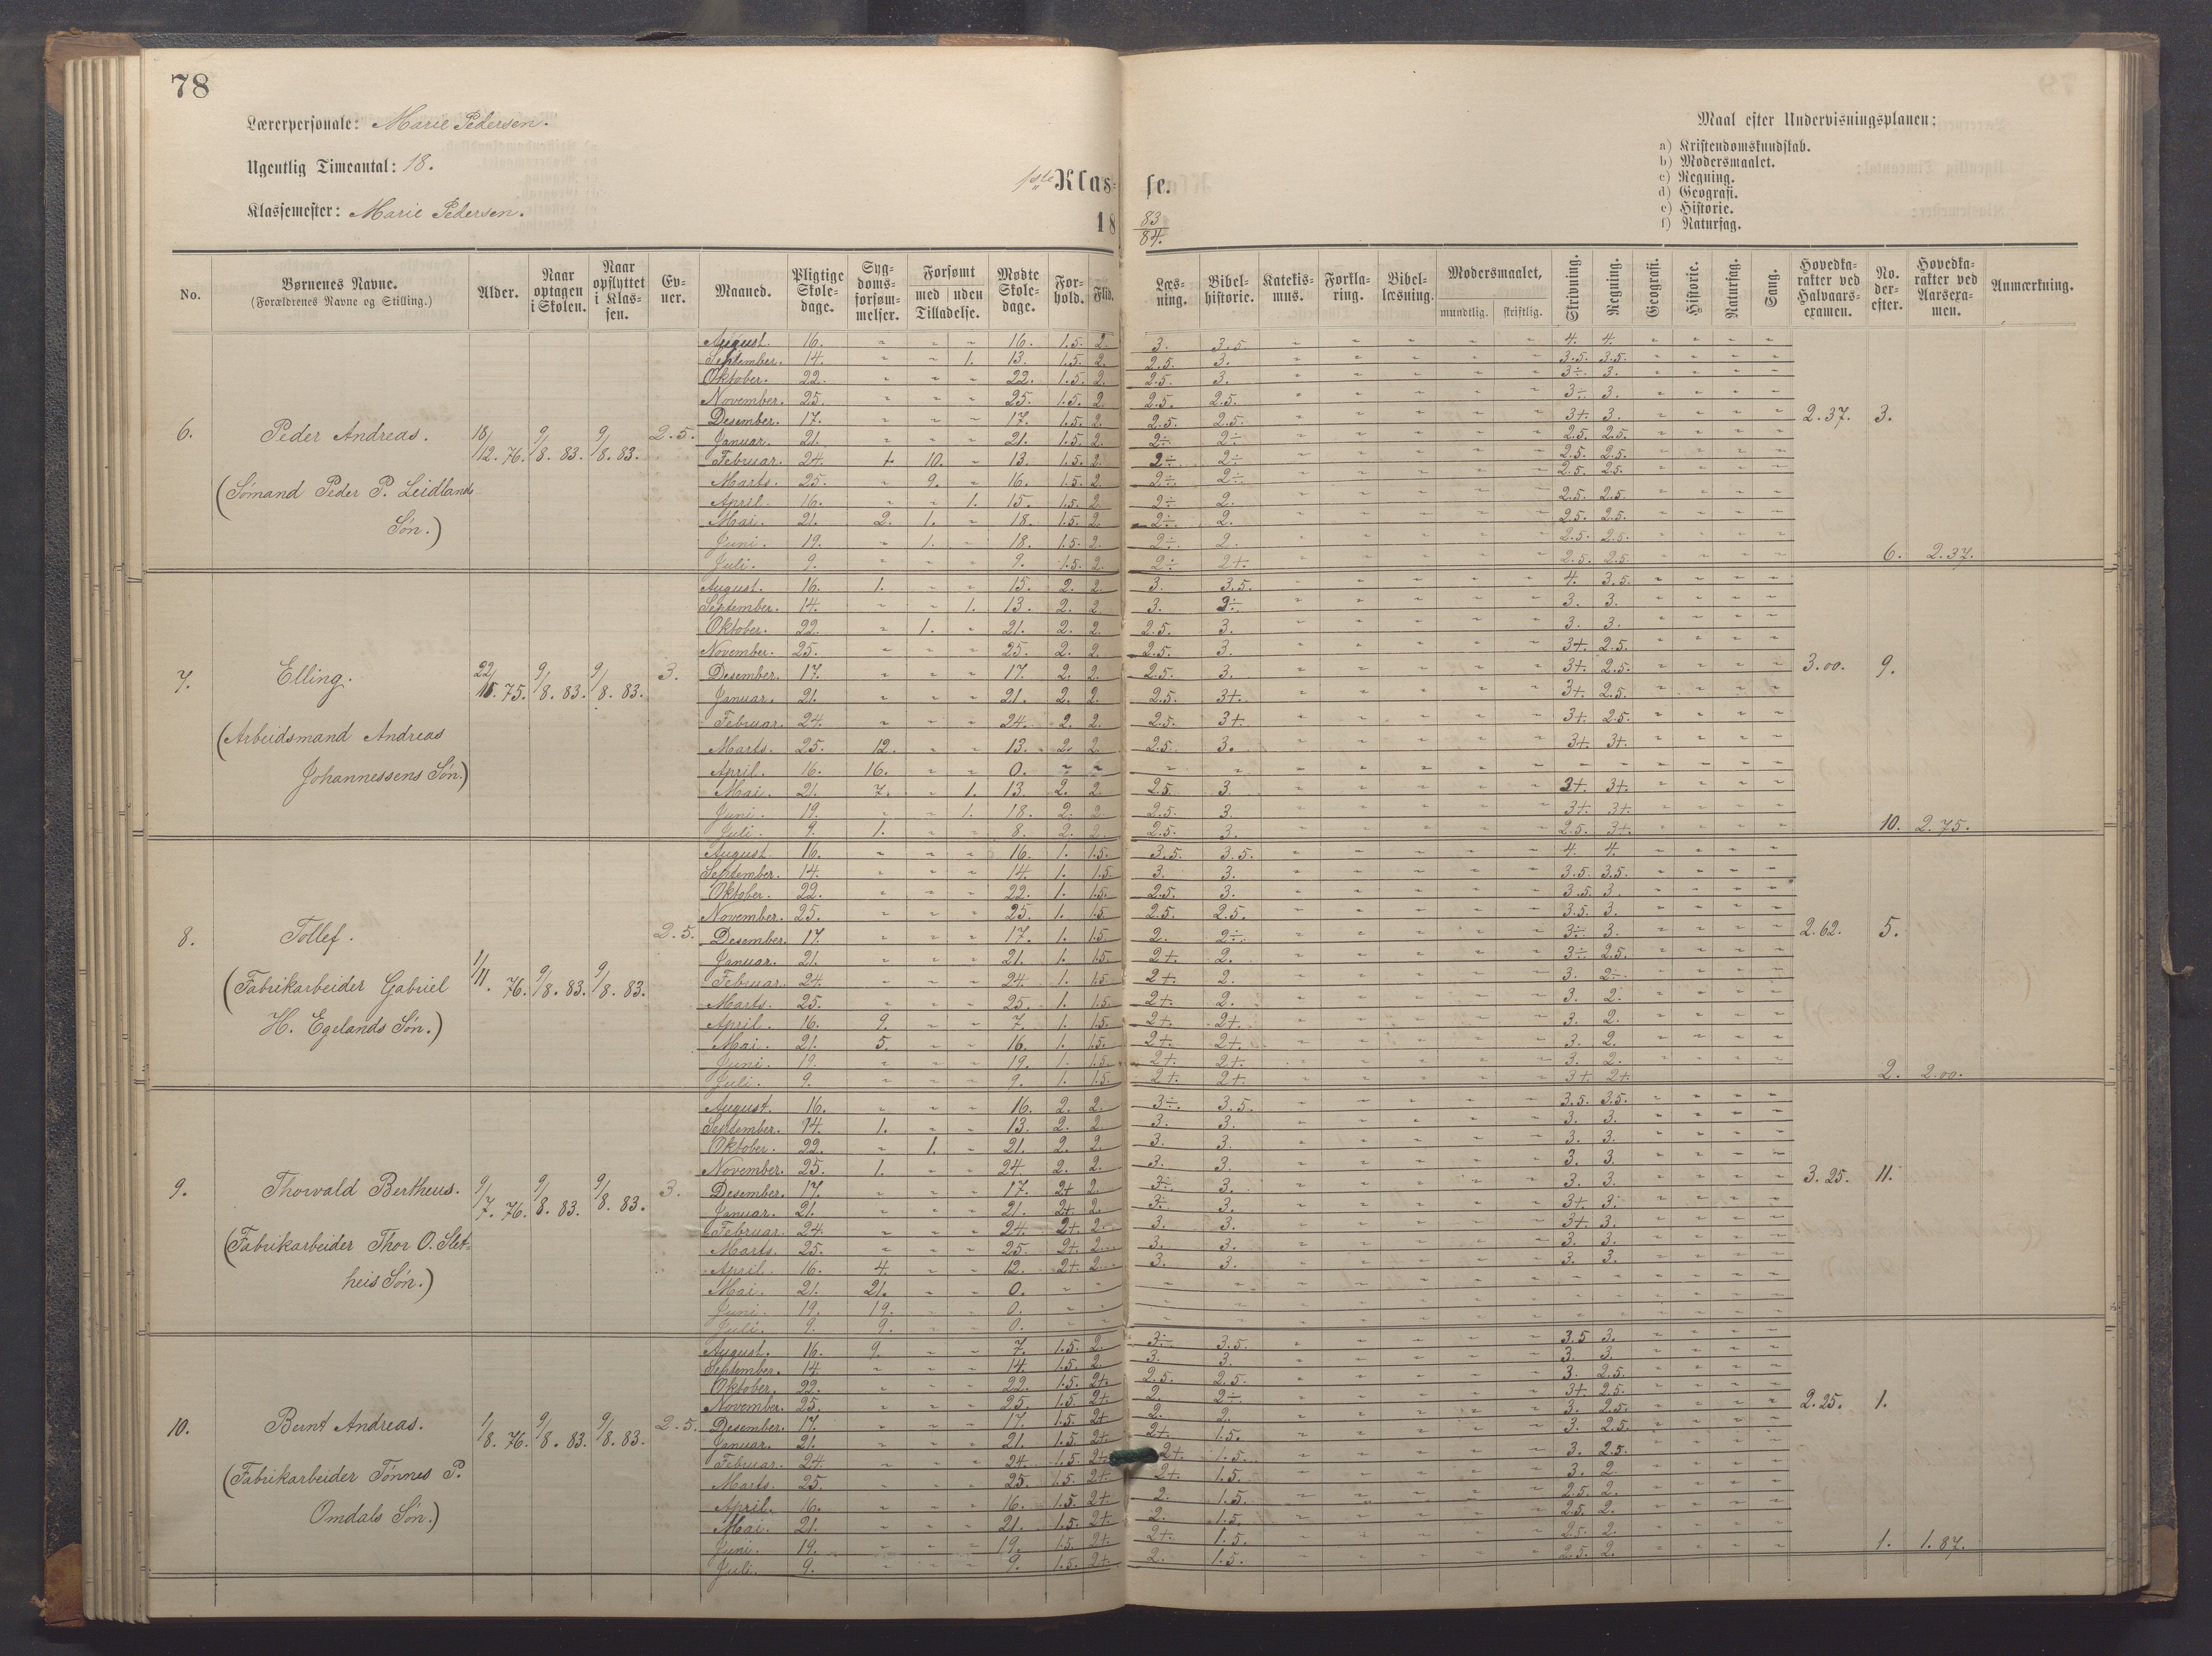 78
Lærerpersonale: Marie Pedersen.
Ugentlig Timeantal: 18.
Klassemester: Marie Pedersen.
1ste Klasse.
18 83/84.
Maal efter Undervisningsplanen:
a) Kristendomskundskab.
b) Modersmaalet.
c) Regning.
d) Geografi.
e) Historie.
f) Naturfag.
No. | Børnenes Navne. (Forældrenes Navne og Stilling.) | Alder. | Naar optagen i Skolen. | Naar opflyttet i Klassen. | Evner. | Maaned. | Pligtige Skoledage. | Sygdomsforsømmelser. | Forsømt med / uden Tilladelse. | Mødte Skoledage. | Forhold. | Flid. | Læsning. | Bibelhistorie. | Katekismus. | Forklaring. | Bibellæsning. | Modersmaalet, mundtlig. skriftlig. | Skrivning. | Regning. | Geografi. | Historie. | Naturfag. | Sang. | Hovedkarakter ved Halvaarsexamen. | No. derefter. | Hovedkarakter ved Aarsexamen. | Anmærkning.
6. Peder Andreas. 18/12. 76. 9/8. 83. 9/8. 83. 2.5. 2.37. 3.
(Sømand Peder P. Leidlands
Søn.)
August. 16. - - - 16. 1.5. 2. 3. 3.5. - - - - - 4. 4. - - - -
September. 14. - - 1. 13. 1.5. 2. 2.5. 3. - - - - - 3.5. 3.5. - - - -
Oktober. 22. - - - 22. 1.5. 2. 2.5. 3. - - - - - 3÷. 3. - - - -
November. 25. - - - 25. 1.5. 2. 2.5. 2.5. - - - - - 3÷ 3. - - - -
Desember. 17. - - - 17. 1.5. 2. 2.5. 2.5. - - - - - 3+. 3. - - - -
Januar. 21. - - - 21. 1.5. 2. 2÷ 2÷ - - - - - 2.5. 2.5. - - - -
Februar. 24. + 10. - 13. 1.5. 2. 2÷. 2÷ - - - - - 2.5. 2.5. - - - -
Marts. 25. - 9. - 16. 1.5. 2. 2÷. 2÷. - - - - - 2.5. 2.5. - - - -
April. 16. - - 1. 15. 1.5. 2. 2÷ 2. - - - - - 2.5. 2.5. - - - -
Mai. 21. 2. 1. - 18. 1.5. 2. 2÷. 2. - - - - - 2.5. 2.5. - - - -
Juni. 19. - 1. - 18. 1.5. 2. 2÷. 2. - - - - - 2.5. 2.5. - - - -
Juli. 9. - - - 9. 1.5. 2. 2÷ 2+. - - - - - 2.5. 2.5. - - - - 6. 2.37.
7. Elling. 22/ 75. 9/8. 83. 9/8. 83. 3. 3.00. 9.
(Arbeidsmand Andreas
Johannessens Søn.)
August. 16. 1. - - 15. 2. 2. 3. 3.5. - - - - - 4. 3.5. - - - -
September. 14. - - 1. 13. 2. 2. 3. 3÷ - - - - - 3. 3. - - - -
Oktober. 22. - 1. - 21. 2. 2. 2.5. 3. - - - - - 3. 3. - - - -
November. 25. - - - 25. 2. 2. 2.5. 3. - - - - - 3+. 2.5. - - - -
Desember. 17. - - - 17. 2. 2. 2.5. 3. - - - - - 3+. 2.5. - - - -
Januar. 21. - - - 21. 2. 2. 2.5. 3+. - - - - - 3+. 2.5. - - - -
Februar. 24. - - - 24. 2. 2. 2.5. 3+. - - - - - 3+. 2.5. - - - -
Marts. 25. 12. - - 13. 2. 2. 2.5. 3. - - - - - 3+. 3+. - - - -
April. 16. 16. - - 0. - - - - - - - - - - - - - - -
Mai. 21. 7. - 1. 13. 2. 2. 2.5. 3. - - - - - 3+. 3+. - - - -
Juni. 19. - - 1. 18. 2. 2. 2.5. 3. - - - - - 3+. 3+. - - - -
Juli. 9. 1. - - 8. 2. 2. 2.5. 3. - - - - - 2.5. 3+. - - - - 10. 2.75.
8. Tollef. 1/11. 76. 9/8. 83. 9/8. 83. 2.5. 2.62. 5.
(Fabrikarbeider Gabriel
H. Egelands Søn.)
August. 16. - - - 16. 1. 1.5. 3.5. 3.5. - - - - - 4. 4. - - - -
September. 14. - - - 14. 1. 1.5. 3. 3. - - - - - 3.5. 3.5. - - - -
Oktober. 22. - - - 22. 1. 1.5. 2.5. 3. - - - - - 3.5. 3. - - - -
November. 25. - - - 25. 1. 1.5 2.5. 2.5. - - - - - 3.5. 3. - - - -
Desember. 17. - - - 17. 1. 1.5 2. 2÷. - - - - - 3÷. 3. - - - -
Januar. 21. - - - 21. 1. 1.5 2+. 2. - - - - - 3÷ 2.5. - - - -
Februar. 24. - - - 24. 1. 1.5 2+. 2. - - - - - 3. 2÷. - - - -
Marts. 25. - - - 25. 1. 1.5. 2+. 2. - - - - - 3. 2. - - - -
April. 16. 9. - - 7. 1. 1.5. 2+. 2+. - - - - - 3. 2. - - - -
Mai. 21. 5. - - 16. 1. 1.5. 2+. 2+. - - - - - 3. 2. - - - -
Juni. 19. - - - 19. 1. 1.5. 2+. 2+. - - - - - 3. 2. - - - -
Juli. 9. - - - 9. 1. 1.5. 2+. 2+. - - - - - 3+. 2+. - - - - 2. 2.00.
9. Thorvald Bertheus. 9/7. 76. 9/8. 83. 9/8. 83. 3. 3.25. 11.
(Fabrikarbeider Thor O. Slet-
heis Søn.)
August. 16. - - - 16. 2. 2. 3÷. 3.5. - - - - - 3.5. 3.5. - - - -
September. 14. 1. - - 13. 2. 2 3. 3. - - - - - 3. 3. - - - -
Oktober. 22. - 1. - 21. 2. 2. 3. 3. - - - - - 3. 3. - - - -
November. 25. 1. - - 24. 2. 2. 3. 3. - - - - - 3. 3. - - - -
Desember. 17. - - - 17. 2+ 2. 3÷. 3. - - - - - 3. 3. - - - -
Januar. 21. - - - 21. 2+. 2. 3÷ 3. - - - - - 3+. 3. - - - -
Februar. 24. - - - 24. 2+. 2. 3. 3. - - - - - 3+. 3. - - - -
Marts. 25. - - - 25. 2+. 2. 3. 3. - - - - - 3. 3. - - - -
April. 16. 4. - - 12. 2+. 2. 3. 3. - - - - - 3. 3. - - - -
Mai. 21. 21. - - 0. - - - - - - - - - - - - - - -
Juni. 19. 19. - - 0. - - - - - - - - - - - - - - -
Juli. 9. 9. - - 0. - - - - - - - - - - - - - - -
10. Bernt Andreas. 1/8. 76. 9/8. 83. 9/8. 83. 2.5. 2.25. 1.
(Fabrikarbeider Tønnes P.
Omdals Søn.)
August. 16. 9. - - 7. 1.5. 2. 3÷. 3.5. - - - - - 3.5 3. - - - -
September. 14. - - - 14 1.5. 2. 3. 3. - - - - - 3. 3. - - - -
Oktober. 22. - - - 22. 1.5. 2+. 2.5. 2.5. - - - - - 3. 2.5. - - - -
November. 25. - - - 25. 1.5. 2+. 2. 2÷. - - - - - 3+ 2.5. - - - -
Desember. 17. - - - 17. 1.5. 2+ 2. 2. - - - - - 3. 2.5. - - - -
Januar. 21. - - - 21. 1.5. 2+. 2+. 1.5. - - - - - 3. 2.5. - - - -
Februar. 24. - - - 24. 1.5 2+ 2+. 1.5. - - - - - 3. 2.5. - - - -
Marts. 25. - - - 25. 1.5. 2+. 2+. 1.5. - - - - - 3. 2. - - - -
April. 16. - - - 16. 1.5. 2+. 2. 1.5. - - - - - 2.5. 2. - - - -
Mai. 21. - - - 21. 1.5. 2+. 2. 1.5. - - - - - 2.5. 2. - - - -
Juni. 19. - - - 19. 1.5. 2+. 2+. 1.5. - - - - - 2.5. 2. - - - -
Juli. 9. - - - 9. 1.5. 2+. 2. 1.5. - - - - - 2.5. 2. - - - - 1. 1.87.